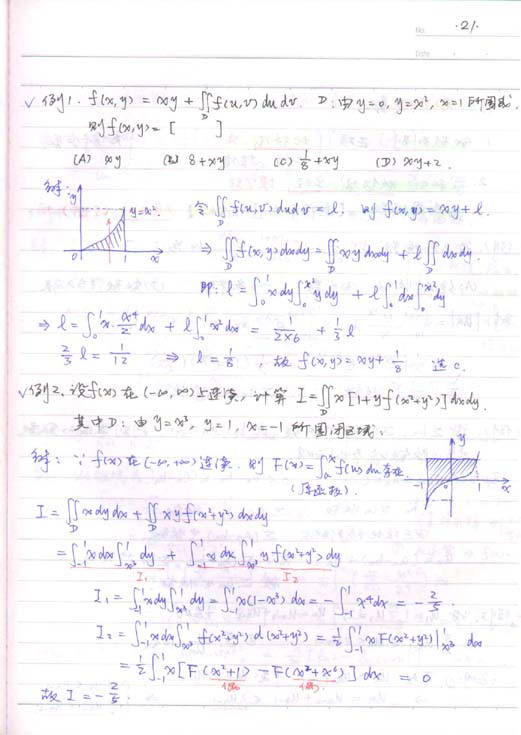 No. ·21·
Date
√ 例1. f(x,y) = xy + ∬_D f(u,v) du dv. D:由 y=0, y=x², x=1 所围成.
则 f(x,y) = [ ]
(A) xy (B) 8+xy (C) 1/8+xy (D) xy+2.
解: 令 ∬_D f(u,v) du dv = l. 则 f(x,y) = xy + l.
y y=x² 0 1 x
⇒ ∬_D f(x,y) dxdy = ∬_D xy dxdy + l ∬_D dxdy.
即: l = ∫_0^1 x dy ∫_0^{x²} y dy + l ∫_0^1 dx ∫_0^{x²} dy
⇒ l = ∫_0^1 x · x⁴/2 dx + l ∫_0^1 x² dx = 1/(2×6) + 1/3 l
2/3 l = 1/12 ⇒ l = 1/8, 故 f(x,y) = xy + 1/8 选 C.
√ 例2. 设 f(x) 在 (-∞,∞) 上连续, 计算 I = ∬_D x[1+yf(x²+y²)] dxdy.
其中 D: 由 y=x³, y=1, x=-1 所围闭区域.
解: ∵ f(x) 在 (-∞,+∞) 连续. 则 F(x) = ∫_a^x f(u) du 存在
y -1 0 1 x
I = ∬_D x dy dx + ∬_D xy f(x²+y²) dxdy
= ∫_{-1}^1 x dx ∫_{x³}^1 dy + ∫_{-1}^1 x dx ∫_{x³}^1 y f(x²+y²) dy
I₁ I₂
I₁ = ∫_{-1}^1 x dy ∫_{x³}^1 dy = ∫_{-1}^1 x(1-x³) dx = -∫_{-1}^1 x⁴ dx = -2/5.
I₂ = ∫_{-1}^1 x dx ∫_{x³}^1 f(x²+y²) d(x²+y²) = 1/2 ∫_{-1}^1 x F(x²+y²)|_{x³}^1 dx
= 1/2 ∫_{-1}^1 x [F(x²+1) - F(x²+x⁶)] dx = 0
(偶) (偶)
故 I = -2/5